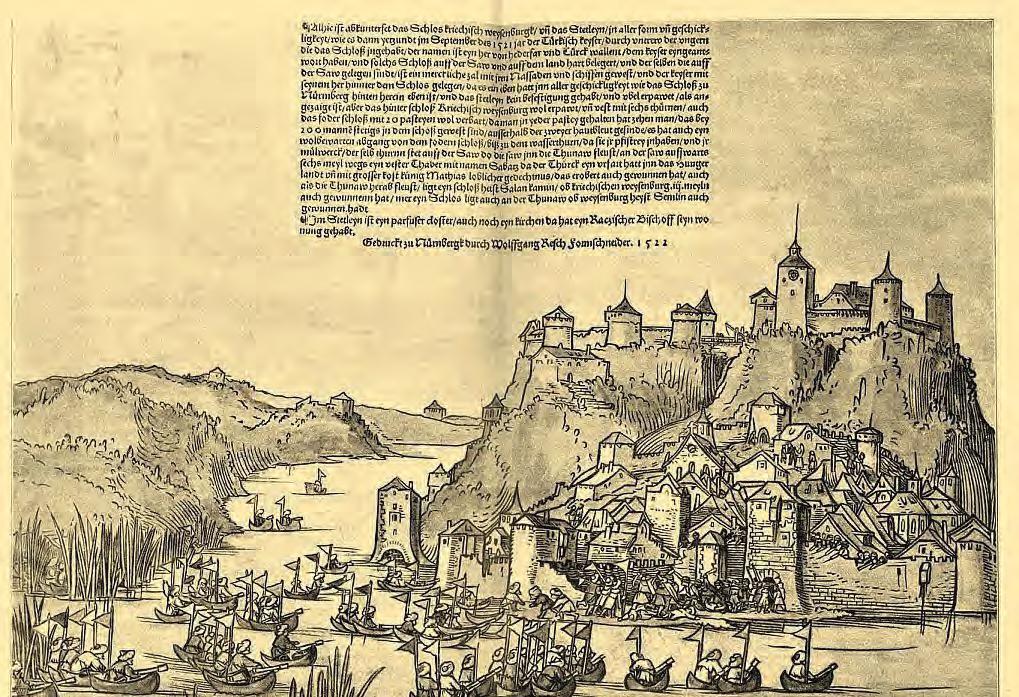 Alhie ist abkunterfet das Schlos kriechisch weysenburgk/ vñ das Stetleyn/ in aller form vñ geschick-
ligkeyt/ wie es dann yezundt im September des 1521 jar der Türkisch keyser/ durch der ungern
die das Schloß jngehabt/ der namen ist eyn her von hederfar vnd Türck wallent/ dem keyser eyngeants
wort haben/ vnd solchs Schloß auff der Saw vnd auff dem land hart belegert/ vnd der selben die auff
der Saw gelegen sindt/ ist ein merckliche zal mit jren Nassaden vnd schiffen gewest/ vnd der keyser mit
seynem her hinner dem Schlos gelegen/ da es ein eben hatt jnn aller geschickligkeyt wie das Schloß zu
Nürmberg hinten herein eben ist/ vnd das stetleyn kein befestigung gehabt/ vnd vbel erpawet/ als an-
gezaigt ist/ aber das hinter schloß Kriechisch weysenburg wol erpawt/ vñ vest mit sechs thürnen/ auch
das foder schloß mit 20 pasteyen wol verbart/ da man in yeder pastey gehalten hat zehen man/ das bey
200 manne stetigs in dem schloß gewest sind/ ausserhalb der zweyer haubtleut gesinde/ es hat auch eyn
wolbewarten abgang von dem fodern schloß/ biß zu dem wasserthurn/ da sie jr pfistrey jnhaben/ vnd jr
mülwerck/ der selb thurnn stet auff der Saw do die saw jnn die Thunaw fleust/ an der saw auffwarts
sechs meyl wegs eyn vester Thaber mit namen Sabatz da der Thürck eyn vrsatt hatt jnn das Hunger
landt vñ mit grosser kost künig Mathias loblicher gedechtnus/ das erobert auch gewunnen hat/ auch
als die Thunaw herab fleust/ ligt eyn schloß heist Salan kamin/ ob kriechischen weysenburg .iij. meyln
auch gewunnenn hat/ mer eyn Schlos ligt auch an der Thunaw ob weysenburg heyst Semlin auch
gewunnen hadt
Im Stetleyn ist eyn parfuser closter/ auch noch eyn kirchen da hat eyn Raczischer Bischoff seyn wo
nung gehabt.
Gedruckt zu Nürmbergk durch Wolffgang Resch Formschneider. 1522